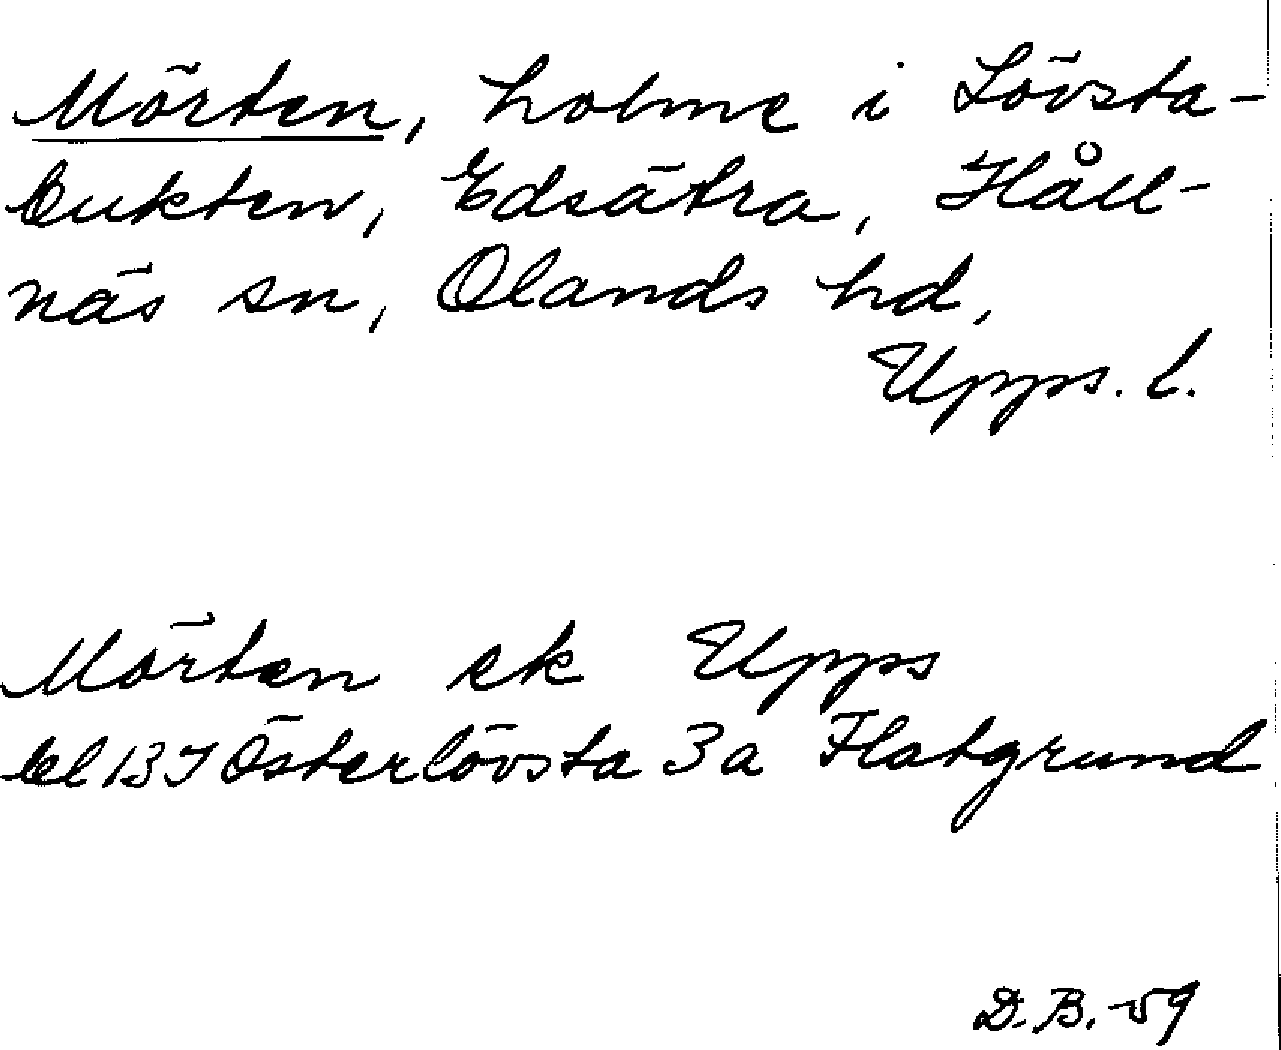 Mörten, holme i Lövsta-
bukten, Edsätra, Håll-
näs sn, Olands hd,
Upps. l.
Mörten ek Upps
bl 137 Österlövsta 3a Flatgrund
D.B. -59